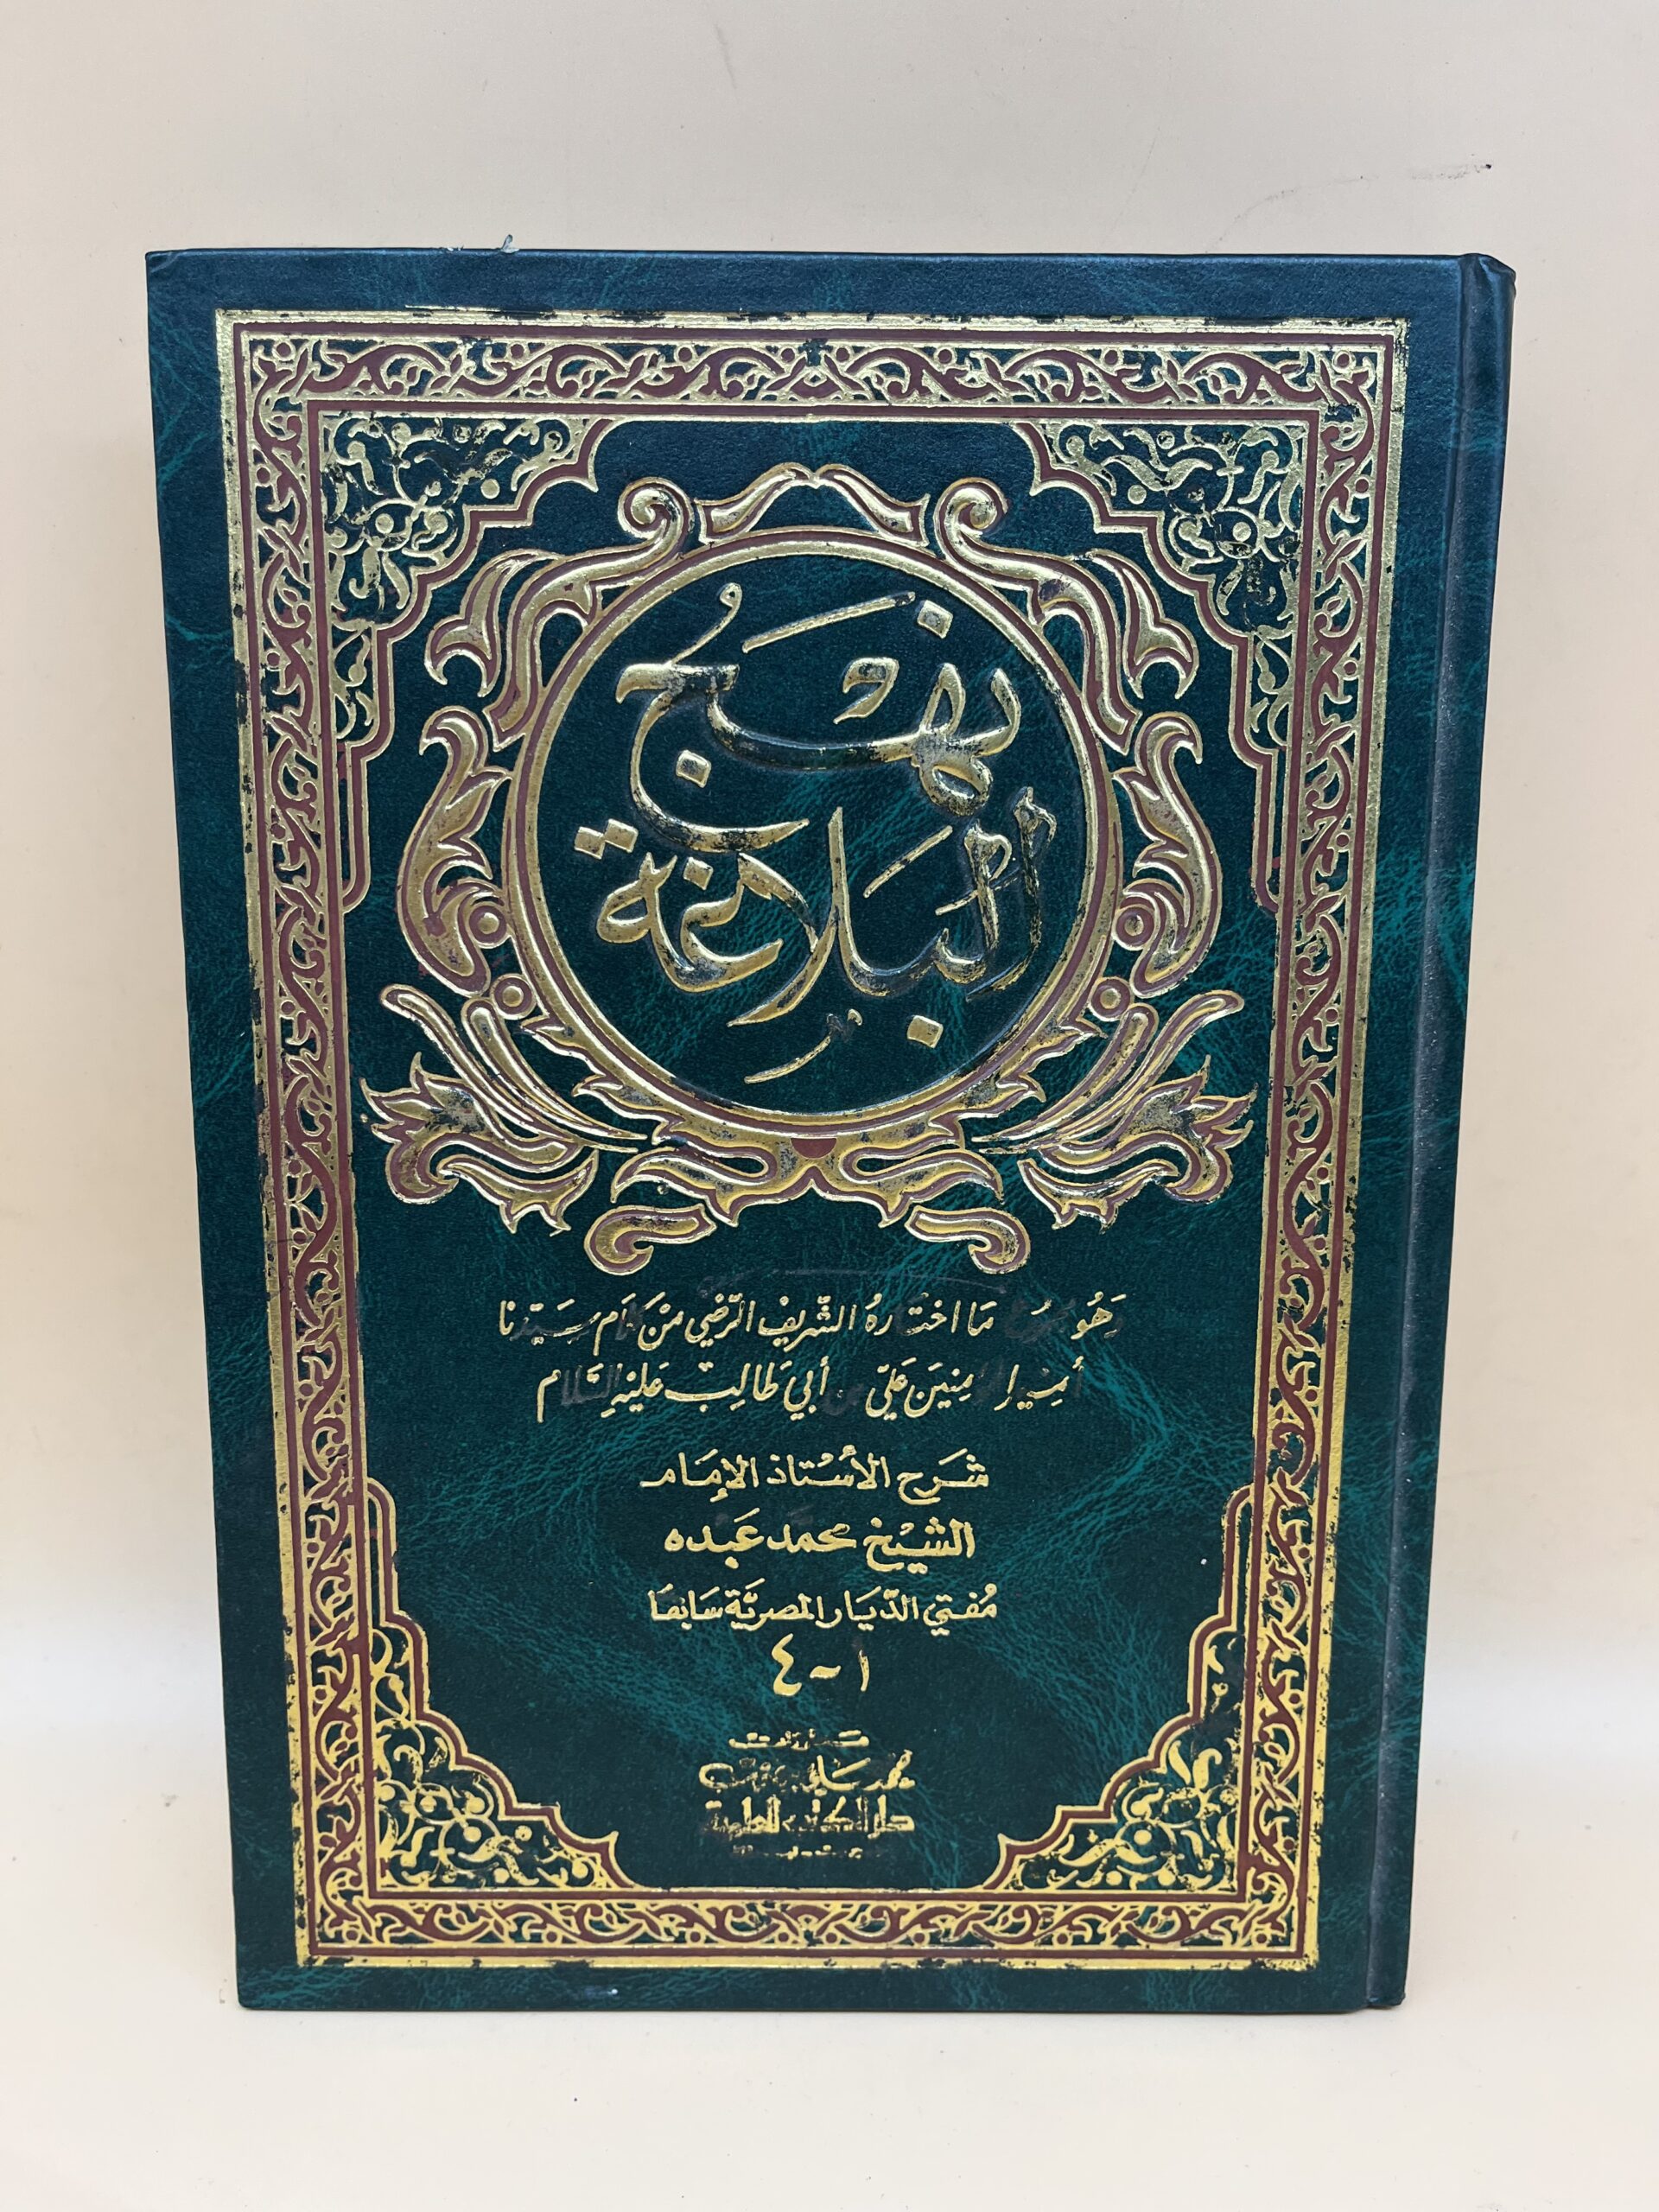 نهج
البلاغة
وَهُوَ مَا اختارهُ الشّريفُ الرّضي مِنْ كَلَام سَيّدنا
أمير المؤمنين عَليّ بن أبي طَالِبْ عَليْهِ السَّلام
شَرح الأُسْتاذ الإمَام
الشيْخ محمّد عَبْده
مُفتي الدّيَار المصريَّة سَابقا
١ - ٤
منشورات
محمد علي بيضون
دار الكتب العلمية